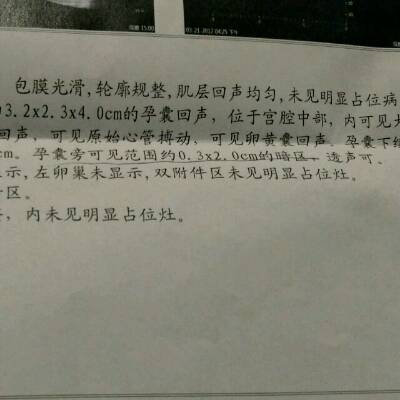 03.21.2017 04:25 下午
包膜光滑,轮廓规整,肌层回声均匀,未见明显占位病
3.2x2.3x4.0cm的孕囊回声，位于宫腔中部，内可见
回声，可见原始心管搏动，可见卵黄囊回声。孕囊下
cm。孕囊旁可见范围约0.3x2.0cm的暗区，透声可。
示,左卵巢未显示,双附件区未见明显占位灶。
区。
，内未见明显占位灶。